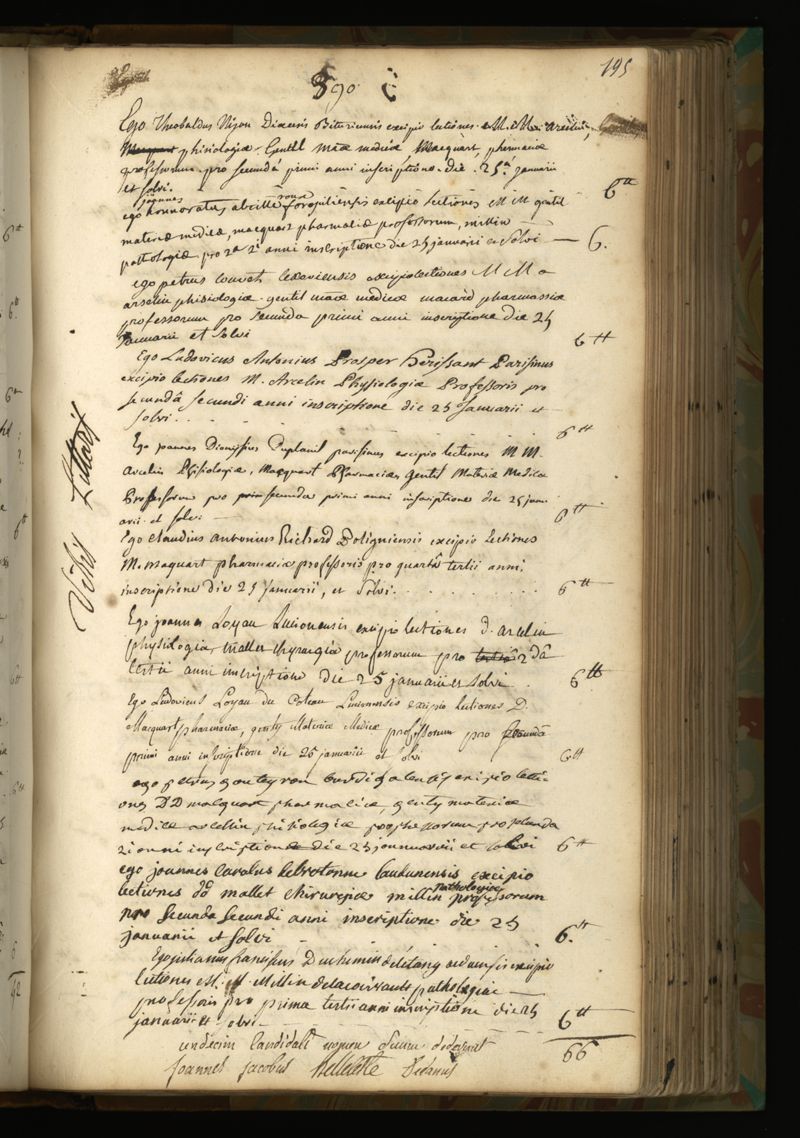 195
Ego Theobaldus Dijon Diocesis Bituricensis excipio lectiones M. M. arcelin,
phisiologiæ Gentil mææ medicæ Macquart, pharmaciæ
professorum pro secundâ primi anni inscriptione. die 25.a januarii
et solvi. 6 tt
joannes
ego honnoratus excipio lectiones M M gentil
materiæ medicæ, macquart pharmaciæ professorum, millin
pathologiæ pro 2a 2i anni inscriptione die 25 januarii et solvi — 6.
ego petrus louvet lexoviensis excipio lectiones M M
arselin phisiologiæ gentil mææ medicæ macard pharmassiæ
professorum pro secunda primi anni inscriptione die 25
Januarii et solvi 6 tt
Ego Ludovicus Antonius Prosper Hérissant Parisinus
excipio lectiones M. Arcelin Physiologiæ Professoris pro
secundâ secundi anni inscriptione die 25 Januarii et
solvi. 6 tt
Ego joannes Dionysius Duplanil parisinus excipio lectiones M M.
Arcelin Phisiologiæ, Macquart Pharmaciæ, gentil Materiæ Medicæ
Professorum pro secunda primi anni inscriptione die 25 janu
arii et solvi 6 tt
Ego claudius antonius Richard Doligniensis excipio lectiones
M. maquart pharmaciæ professoris pro quartâ tertii anni
inscriptione die 25 Januarii, et solvi. 6 tt
Ego joannes Loyau Lucionensis excipio lectiones d. arcelin
physiologiæ, mallet chyrurgiæ professorum pro 2dâ
tertii anni inscriptione die 25 januarii et solvi 6 tt
Ego Ludovicus Loyau du Coteau Lucionensis excipio lectiones D.
Macquart pharmaciæ, genty Materiæ Medicæ professorum pro secundâ
primi anni inscriptione die 25 januarii et solvi 6 tt
ego petrus excipio lecti
ones DD macquart pharmaciæ, genty materiæ
medicæ arcelin phisiologiæ professorum pro secunda
2i anni inscriptione die 25 januarii et solvi 6 tt
ego joannes Carolus lebretonne laudunensis excipio
lectiones dd mallet chirurgiæ millin pathologiæ professorum
pro secunda secundi anni inscriptione die 25
januarii et solvi 6. tt
Ego julianus franciscus Duchemin deletang excipio
lectiones M. M Millin delacourvault pathologiæ
professoris pro prima tertii anni inscriptione die 25
januarii et solvi 6 tt
undecim Candidati nomen suum dederunt 66
Joannes Jacobus belleteste Decanus